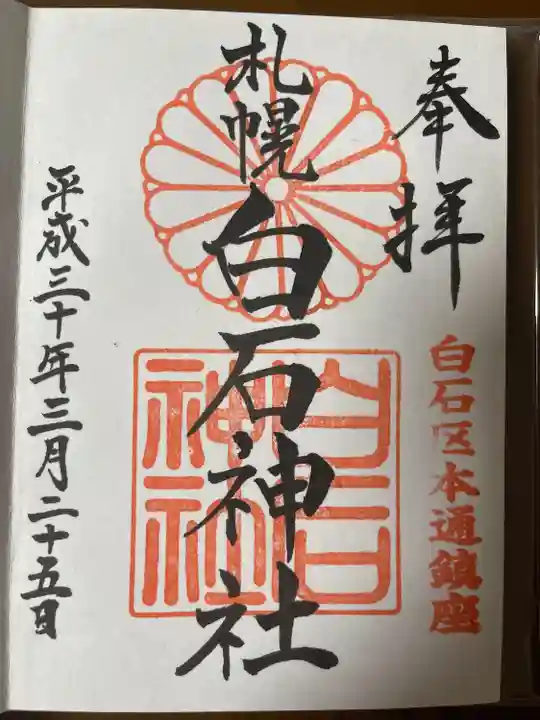 奉拝
白石区本通鎮座
札幌
白石神社
白石
神社
平成三十年三月二十五日